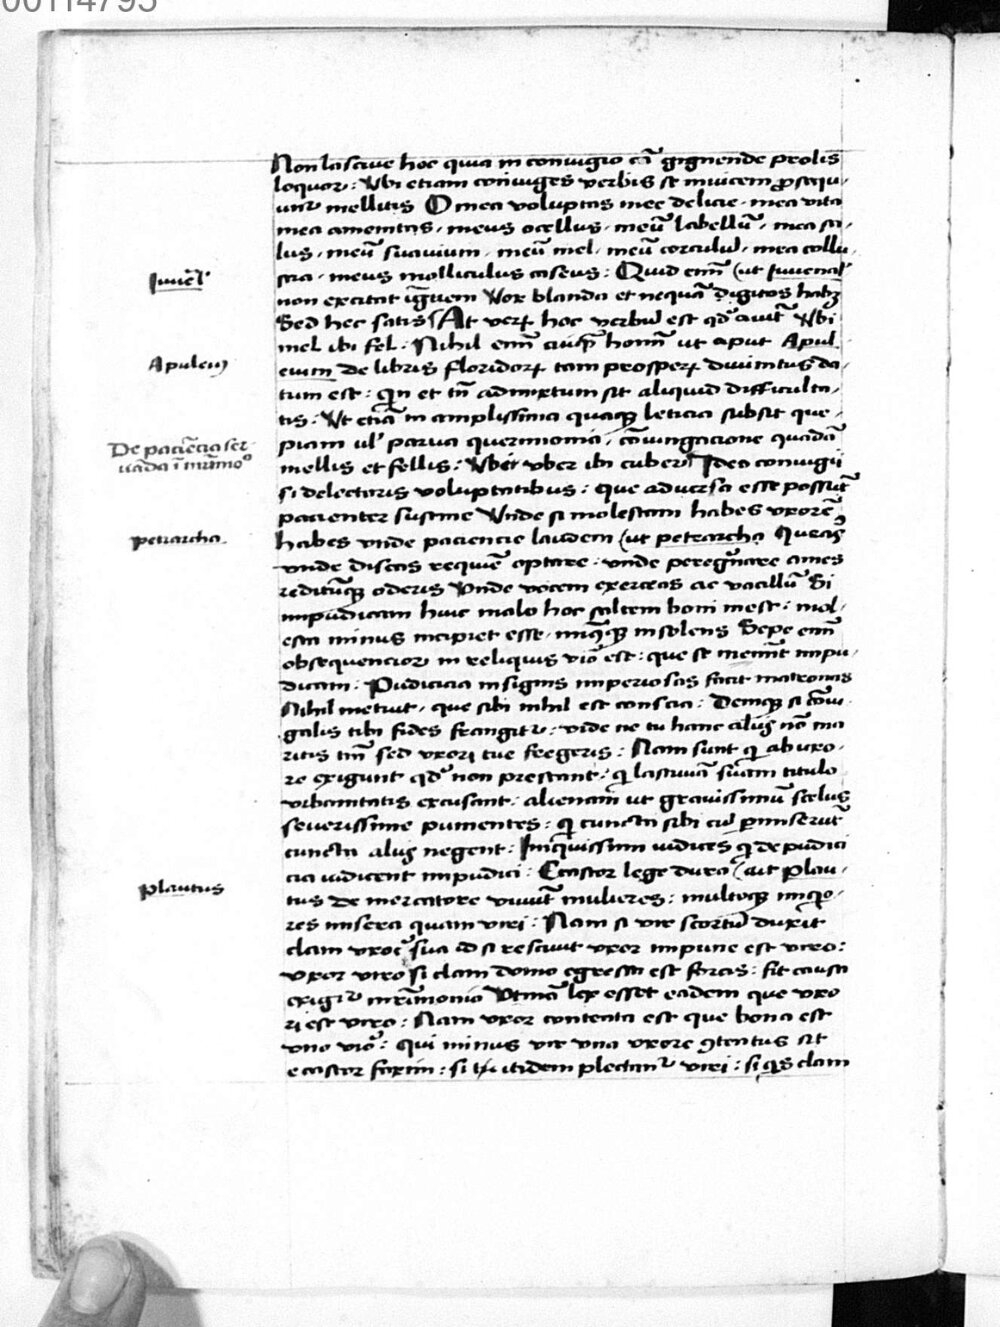 00114795
Non lasciue hoc quia in coniugio cā gignende prolis
loquor : Vbi etiam coniuges verbis se inuicem ꝓsequ/
unt͛ mellitis O mea voluptas mee delicie · mea vita
mea amenitas · meus ocellus · meū labellū · mea sa/
lus · meū suauium · meū mel · meū corculū · mea collu/
stra · meus molliculus caseus : Quid em̄ (ut Iuuenal͛
Iuuēl͛
non excitat īguem Vox blanda et nequā digitos habꝫ
Sed hec satis At verꝝ hoc verbū est qd̄ aiūt Vbi
mel ibi fel · Nihil em̄ cuiꝗꝫ hoīm ut aput Apul/
Apuleiꝰ
eium de libris floridoꝝ tam prosperꝝ diuinitus da/
tum est : qͥn et tn̄ admixtum sit aliquid difficulta/
tis · Vt etiā in amplissima quaꝗꝫ leticia subsit que/
De paciēcia ser
piam ul͛ parua querimonia · cōiungacione quadā
uāda ī mr̄imoᵒ
mellis et fellis : Vbi vber ibi tuber Idea coniugii
si delectaris voluptatibus : que aduersa esse possūt
pacienter sustine Vnde si molestam habes vxorē
petrarcha
habes vnde paciencie laudem (ut petrarcha Queras
vnde discas requiē optare : vnde peregͥnare ames
reditūꝗꝫ oderis Vnde vocem exerceas ac bacillū Si
impudicam huic malo hoc saltem boni inest : mol/
esta minus incipiet esse · minꝰꝗꝫ insolens Sepe em̄
obsequencior in reliquis viͦ est : que se meminit impu/
dicam : Pudicicia insignis imperiosas facit matronas
Nihil metuit · que sibi nihil est conscia : Demꝗꝫ si cōiu/
galis tibi fides frangitᷣ : vide ne tu hanc aliis nō ma
ritis tm̄ sed vxori tue fregeris : Nam sunt qͥ ab uxo/
re exigunt qd̄ non prestant : qͥ lasciuiā suam titulo
vrbanitatis excusant : alienam ut grauissimū scelus
seuerissime punientes : qͥ cuncta sibi cū ꝑmiserūt
cuncta aliis negent : Iniquissimi iudices qͥ de pudici
cia iudicent impudici : Ecastor lege dura (ait Plau/
plautus
tus de mercatore viuūt mulieres : multoꝗꝫ iniqͥo/
res misera quam viri : Nam si vir scortū duxit
clam vxorē sua id si resciuit vxor impune est viro :
vxor viro si clam domo egressa est foras : fit causa
exigitᷣ mr̄imonio Vtinā lex esset eadem que vxo
ri est viro : Nam vxor contenta est que bona est
vno viro : qui minus vir vna vxore ꝯtentus sit
ecastor faxim : si itidem plectantᷣ viri : si qͥs clam